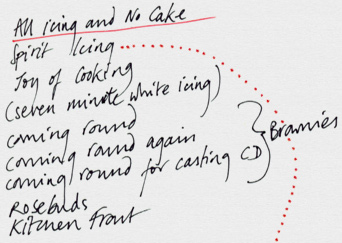 All icing and No Cake
Spirit Icing
Joy of Cooking
(seven minute white icing)
coming round
coming round again
coming round for casting CD
Brownies
Rosebuds
Kitchen Front